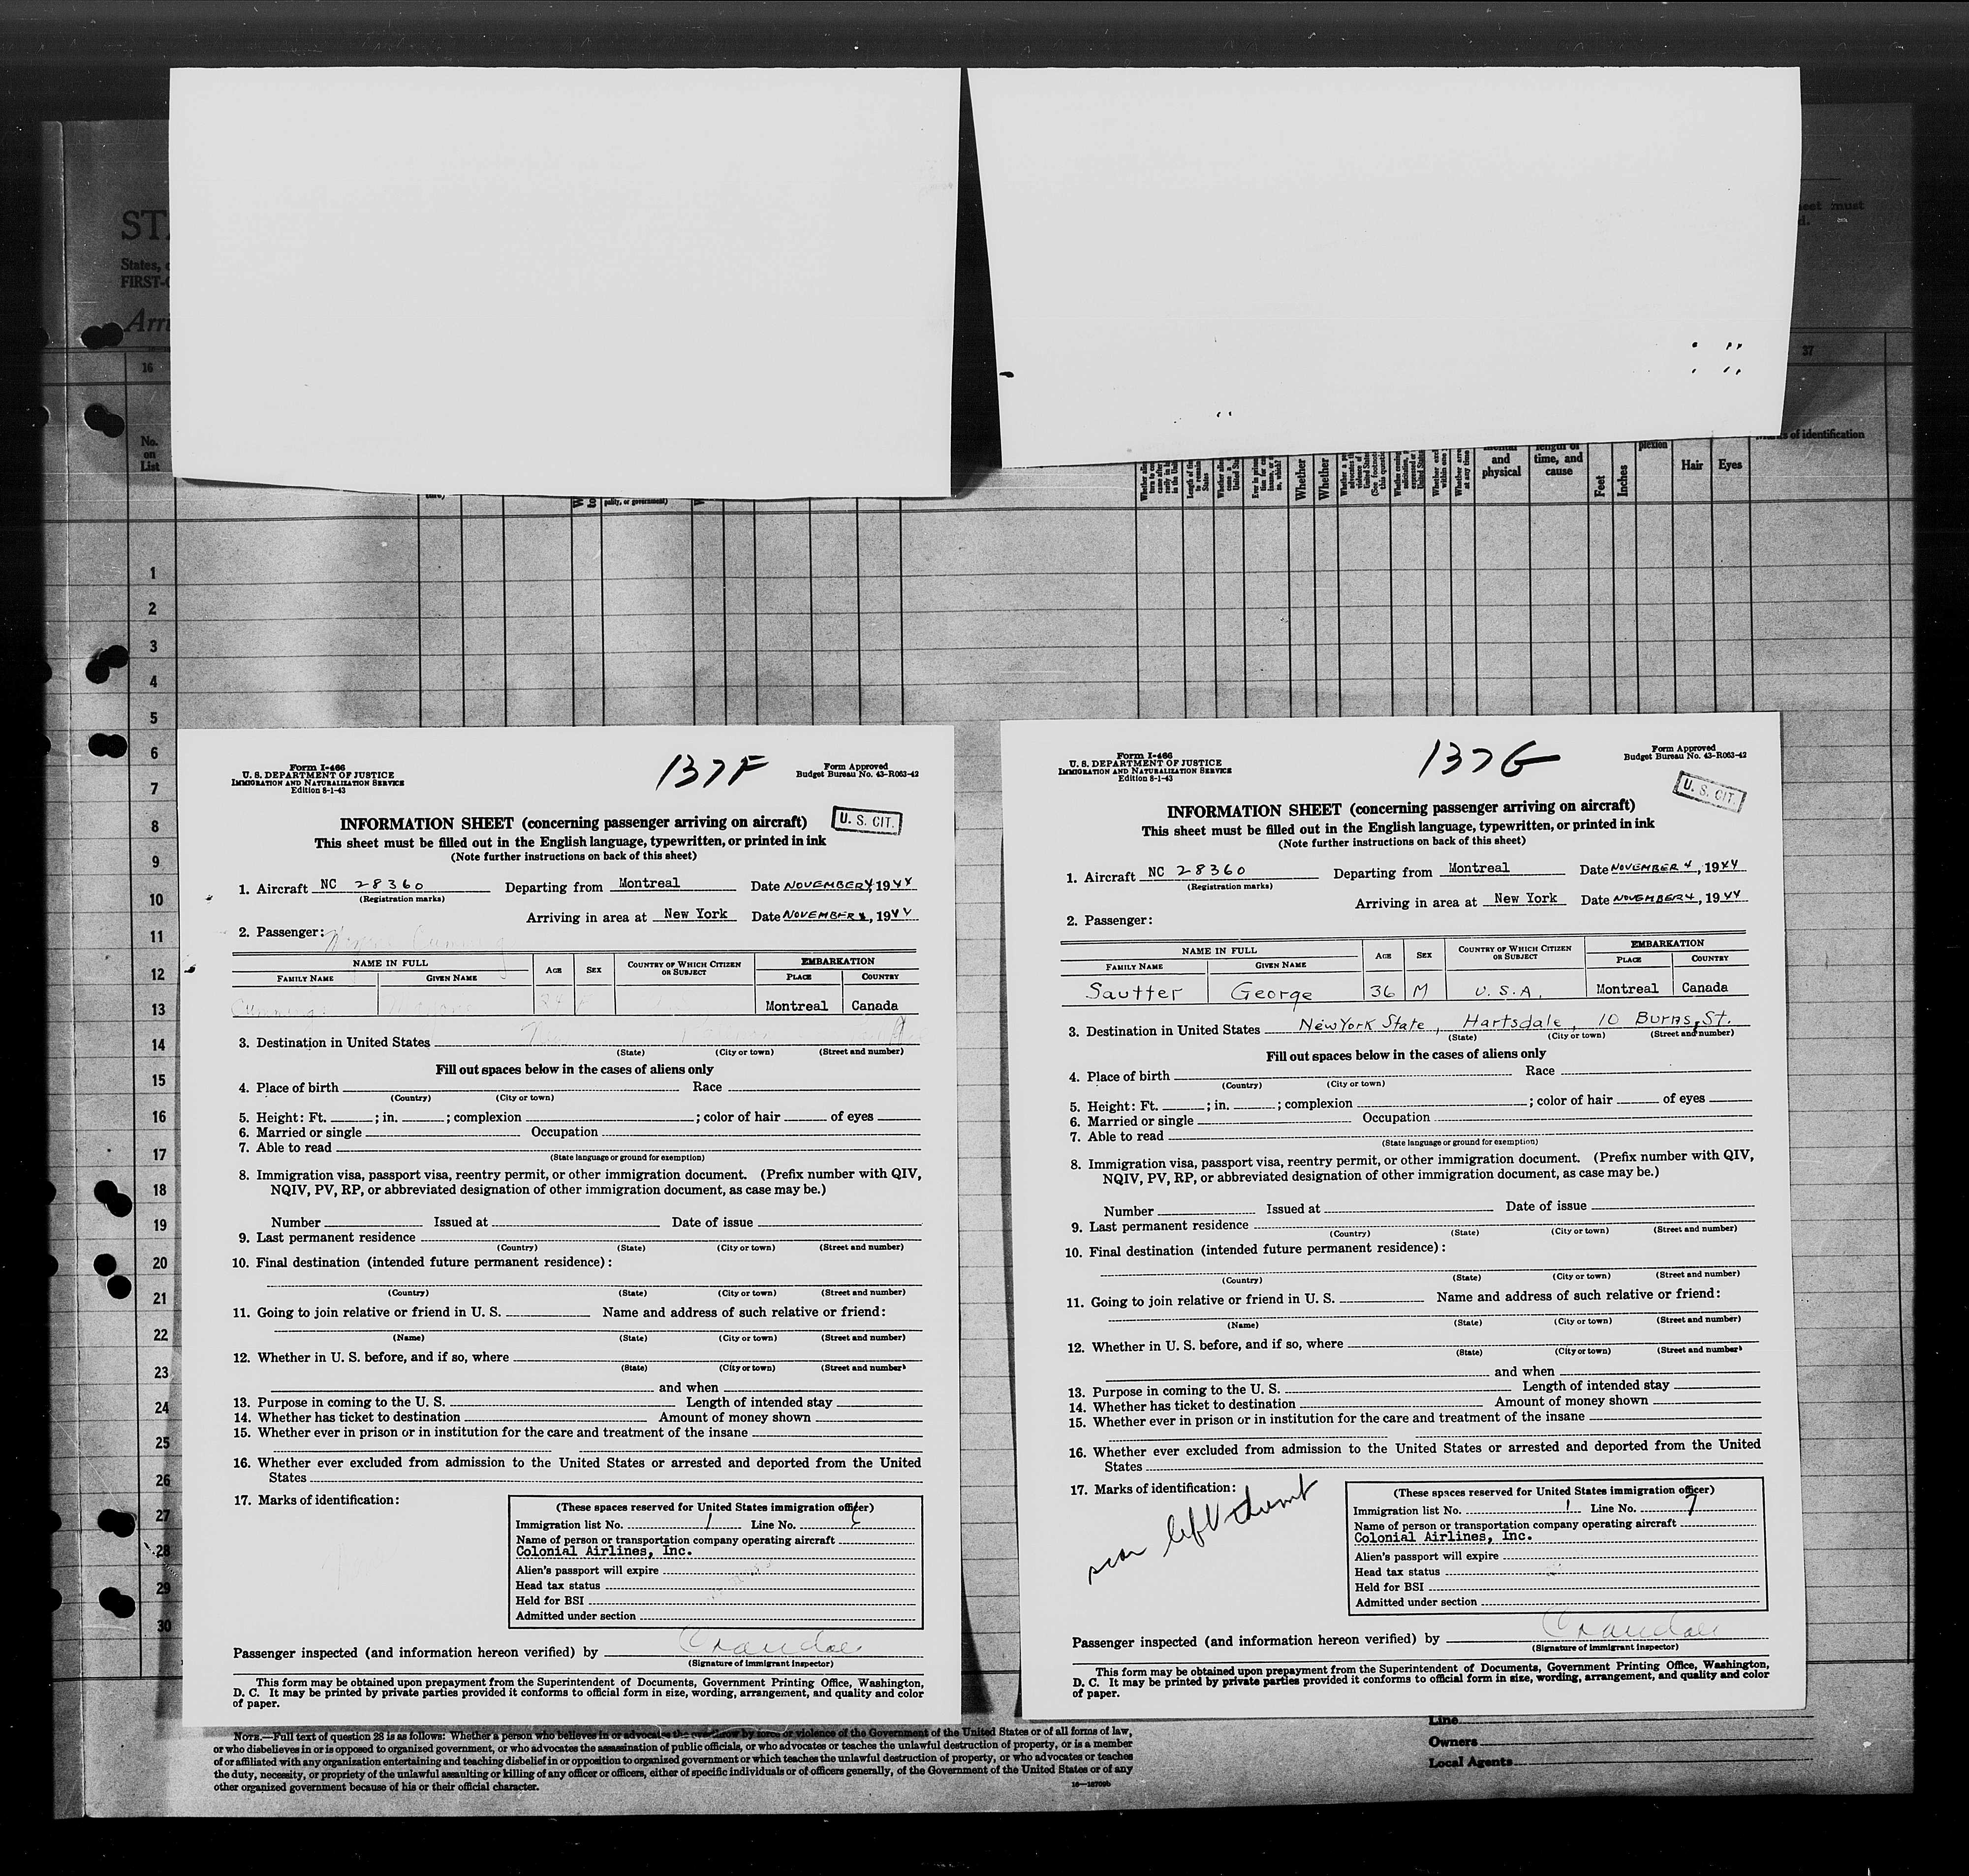 ST
States,
FIRST-
Arri
eet must
16
37
No.
on
List
polity, or government)
and
physical
length of
time, and
cause
Feet
Inches
plexion
Hair
Eyes
of identification
Whether
Whether
1
2
3
4
5
6
7
8
9
10
11
12
13
14
15
16
17
18
19
20
21
22
23
24
25
26
27
28
29
30
Form I-466
U. S. DEPARTMENT OF JUSTICE
IMMIGRATION AND NATURALIZATION SERVICE
Edition 8-1-43
137F
Form Approved
Budget Bureau No. 43-R063-42
U. S. CIT.
INFORMATION SHEET (concerning passenger arriving on aircraft)
This sheet must be filled out in the English language, typewritten, or printed in ink
(Note further instructions on back of this sheet)
1. Aircraft NC 28360 Departing from Montreal Date NOVEMBER 4, 1944
(Registration marks)
Arriving in area at New York Date NOVEMBER 4, 1944
2. Passenger:
NAME IN FULL AGE SEX COUNTRY OF WHICH CITIZEN OR SUBJECT EMBARKATION
FAMILY NAME GIVEN NAME PLACE COUNTRY
Montreal Canada
3. Destination in United States
(State) (City or town) (Street and number)
Fill out spaces below in the cases of aliens only
4. Place of birth Race
(Country) (City or town)
5. Height: Ft. ; in. ; complexion ; color of hair of eyes
6. Married or single Occupation
7. Able to read
(State language or ground for exemption)
8. Immigration visa, passport visa, reentry permit, or other immigration document. (Prefix number with QIV,
NQIV, PV, RP, or abbreviated designation of other immigration document, as case may be.)
Number Issued at Date of issue
9. Last permanent residence
(Country) (State) (City or town) (Street and number)
10. Final destination (intended future permanent residence):
(Country) (State) (City or town) (Street and number)
11. Going to join relative or friend in U. S. Name and address of such relative or friend:
(Name) (State) (City or town) (Street and number)
12. Whether in U. S. before, and if so, where
(State) (City or town) (Street and number)
and when
13. Purpose in coming to the U. S. Length of intended stay
14. Whether has ticket to destination Amount of money shown
15. Whether ever in prison or in institution for the care and treatment of the insane
16. Whether ever excluded from admission to the United States or arrested and deported from the United
States
17. Marks of identification:
(These spaces reserved for United States immigration officer)
Immigration list No. 1 Line No.
Name of person or transportation company operating aircraft
Colonial Airlines, Inc.
Alien's passport will expire
Head tax status
Held for BSI
Admitted under section
Passenger inspected (and information hereon verified) by Crandall
(Signature of Immigrant Inspector)
This form may be obtained upon prepayment from the Superintendent of Documents, Government Printing Office, Washington,
D. C. It may be printed by private parties provided it conforms to official form in size, wording, arrangement, and quality and color
of paper.
Form I-466
U. S. DEPARTMENT OF JUSTICE
IMMIGRATION AND NATURALIZATION SERVICE
Edition 8-1-43
137G
Form Approved
Budget Bureau No. 43-R063-42
U. S. CIT.
INFORMATION SHEET (concerning passenger arriving on aircraft)
This sheet must be filled out in the English language, typewritten, or printed in ink
(Note further instructions on back of this sheet)
1. Aircraft NC 28360 Departing from Montreal Date NOVEMBER 4, 1944
(Registration marks)
Arriving in area at New York Date NOVEMBER 4, 1944
2. Passenger:
NAME IN FULL AGE SEX COUNTRY OF WHICH CITIZEN OR SUBJECT EMBARKATION
FAMILY NAME GIVEN NAME PLACE COUNTRY
Sautter George 36 M U.S.A. Montreal Canada
3. Destination in United States New York State, Hartsdale, 10 Burns St.
(State) (City or town) (Street and number)
Fill out spaces below in the cases of aliens only
4. Place of birth Race
(Country) (City or town)
5. Height: Ft. ; in. ; complexion ; color of hair of eyes
6. Married or single Occupation
7. Able to read
(State language or ground for exemption)
8. Immigration visa, passport visa, reentry permit, or other immigration document. (Prefix number with QIV,
NQIV, PV, RP, or abbreviated designation of other immigration document, as case may be.)
Number Issued at Date of issue
9. Last permanent residence
(Country) (State) (City or town) (Street and number)
10. Final destination (intended future permanent residence):
(Country) (State) (City or town) (Street and number)
11. Going to join relative or friend in U. S. Name and address of such relative or friend:
(Name) (State) (City or town) (Street and number)
12. Whether in U. S. before, and if so, where
(State) (City or town) (Street and number)
and when
13. Purpose in coming to the U. S. Length of intended stay
14. Whether has ticket to destination Amount of money shown
15. Whether ever in prison or in institution for the care and treatment of the insane
16. Whether ever excluded from admission to the United States or arrested and deported from the United
States
17. Marks of identification:
scar left
(These spaces reserved for United States immigration officer)
Immigration list No. 1 Line No. 7
Name of person or transportation company operating aircraft
Colonial Airlines, Inc.
Alien's passport will expire
Head tax status
Held for BSI
Admitted under section
Passenger inspected (and information hereon verified) by Crandall
(Signature of Immigrant Inspector)
This form may be obtained upon prepayment from the Superintendent of Documents, Government Printing Office, Washington,
D. C. It may be printed by private parties provided it conforms to official form in size, wording, arrangement, and quality and color
of paper.
NOTE.—Full text of question 28 is as follows: Whether a person who believes in or advocates the overthrow by force or violence of the Government of the United States or of all forms of law,
or who disbelieves in or is opposed to organized government, or who advocates the assassination of public officials, or who advocates or teaches the unlawful destruction of property, or is a member
of or affiliated with any organization entertaining and teaching disbelief in or opposition to organized government or which teaches the unlawful destruction of property, or who advocates or teaches
the duty, necessity, or propriety of the unlawful assaulting or killing of any officer or officers, either of specific individuals or of officers generally, of the Government of the United States or of any
other organized government because of his or their official character.
Line
Owners
Local Agents